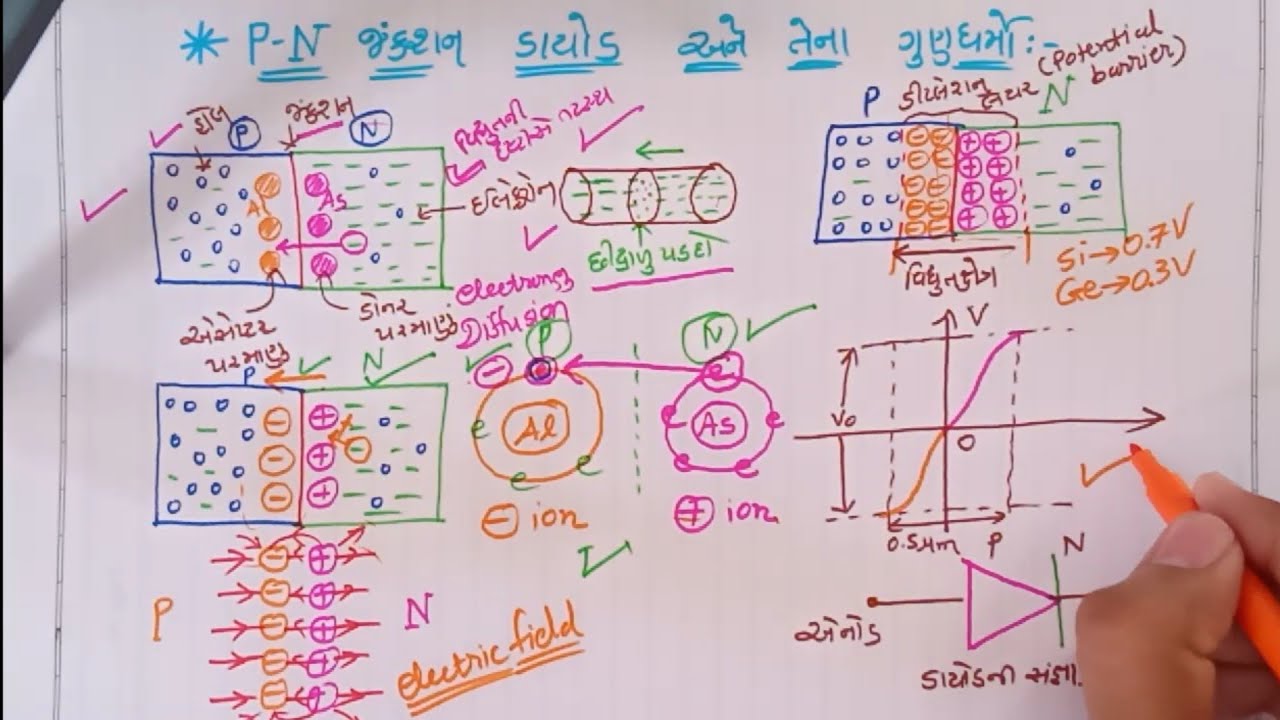 * P-N જંક્શન ડાયોડ અને તેના ગુણધર્મો :-
હોલ P જંક્શન N
Al As
ઇલેક્ટ્રોન
એસેપ્ટર પરમાણું
ડોનર પરમાણું
છીદ્રાળુ પડદો
Diffusion
P ડીપ્લેશન લેયર N
(Potential barrier)
વિદ્યુતક્ષેત્ર
Si→0.7V
Ge→0.3V
P N
P N
Al As
e e e e e e e e
⊖ ion ⊕ ion
P N
electric field
V
V₀
O
0.5μm
P N
એનોડ
ડાયોડની સંજ્ઞા.